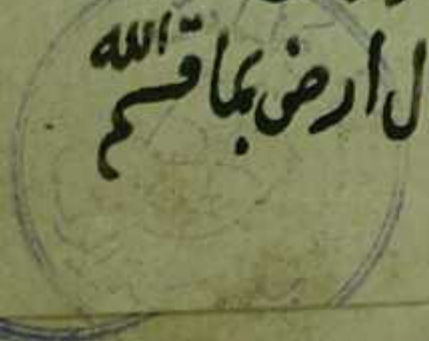 ل ارض بما قسم الله